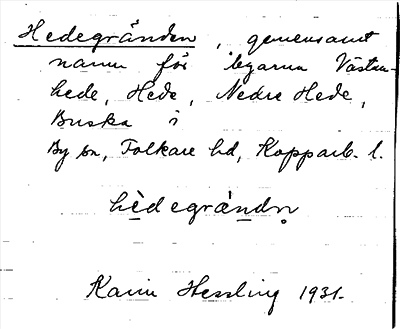 Hedegränden, gemensamt
namn för byarna Västan-
hede, Hede, Nedre Hede,
Buska i
By sn, Folkare hd, Kopparb. l.
hèdegrän̄dn̥
Karin Hessling 1931.